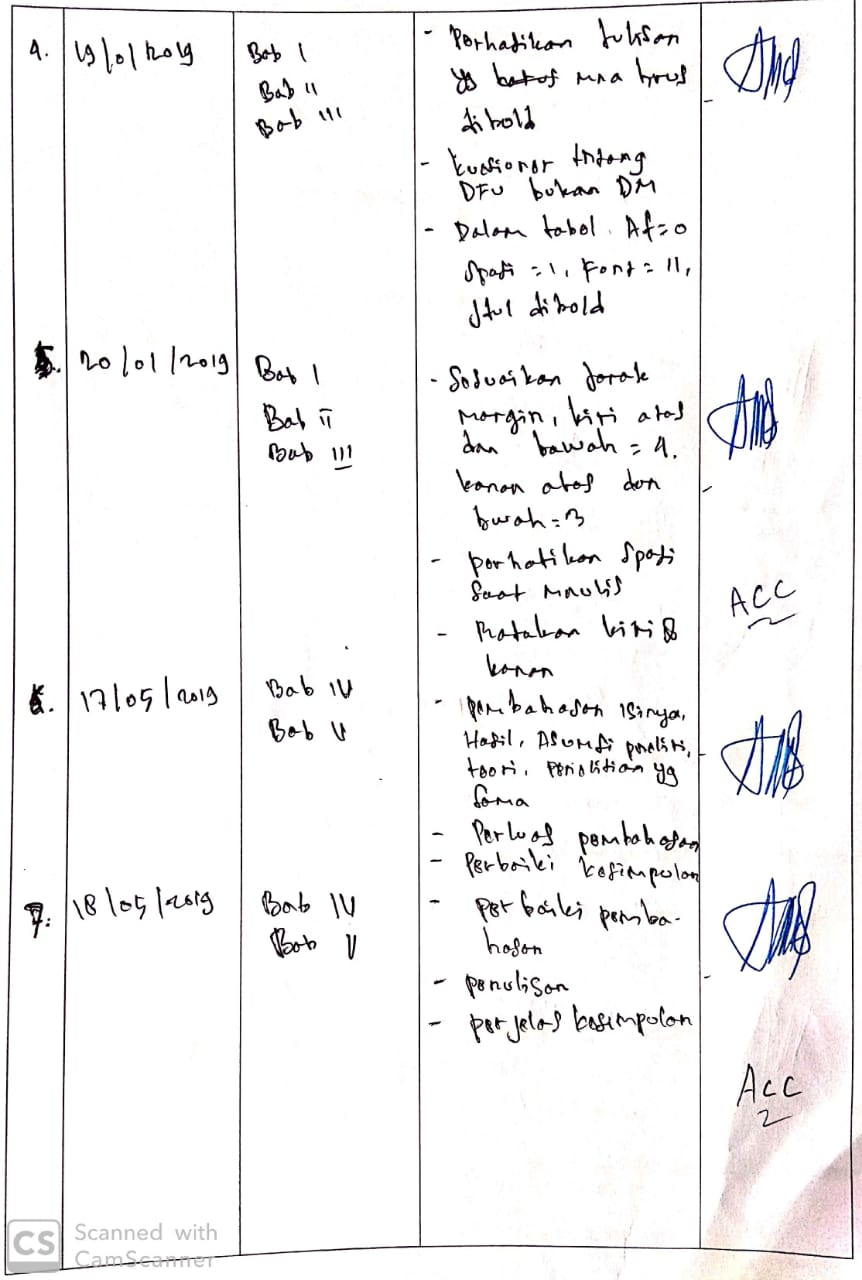 4. 19/01/2019 Bab I
Bab II
Bab III
- Perhatikan tulisan
yg harus mna hrus
dibold
- kuesioner tntang
DFU bukan DM
- Dalam tabel. Af=0
Spasi =1, Font = 11,
Jdul dibold
5. 20/01/2019 Bab I
Bab II
Bab III
- Sesuaikan Jarak
Margin, kiri atas
dan bawah = 4.
kanan atas dan
bwah = 3
- perhatikan Spasi
Saat menulis
- Ratakan kiri &
kanan
ACC
6. 17/05/2019 Bab IV
Bab V
- pembahasan isinya,
Hasil, Asumsi peneliti,
teori, Penelitian yg
Sama
- Perluas pembahasan
- Perbaiki kesimpulan
7. 18/05/2019 Bab IV
Bab V
- perbaiki pemba-
hasan
- penulisan
- perjelas kesimpulan
ACC
CS Scanned with
CamScanner